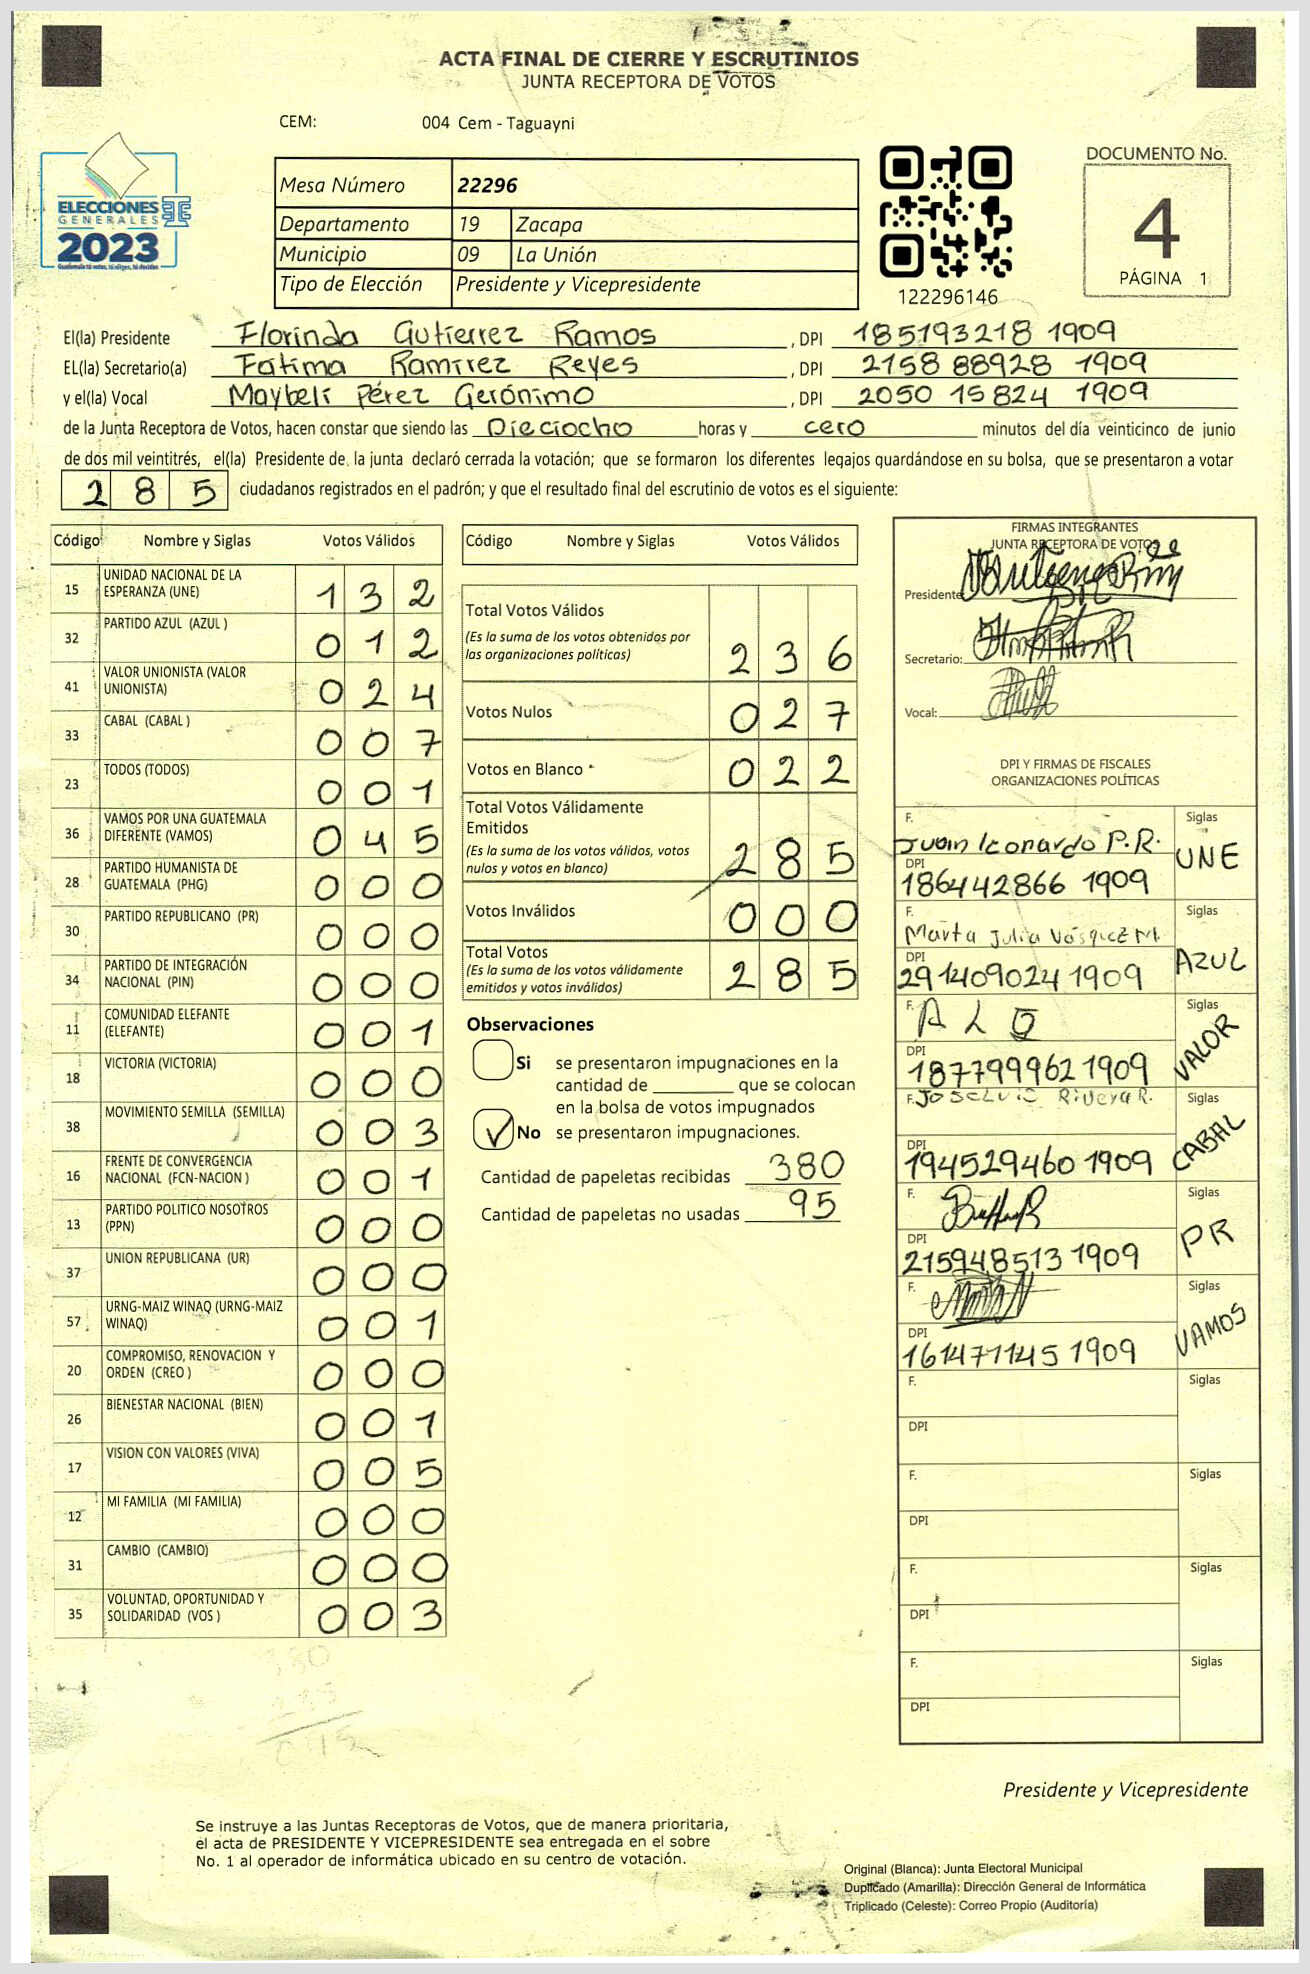 ACTA FINAL DE CIERRE Y ESCRUTINIOS
JUNTA RECEPTORA DE VOTOS
CEM: 004 Cem - Taguayni
ELECCIONES
GENERALES
2023
Mesa Número 22296
Departamento 19 Zacapa
Municipio 09 La Unión
Tipo de Elección Presidente y Vicepresidente
122296146
DOCUMENTO No.
4
PÁGINA 1
El(la) Presidente Florinda Gutierrez Ramos , DPI 185193218 1909
EL(la) Secretario(a) Fátima Ramírez Reyes , DPI 2158 88928 1909
y el(la) Vocal Maybelí Pérez Gerónimo , DPI 2050 15824 1909
de la Junta Receptora de Votos, hacen constar que siendo las Dieciocho horas y cero minutos del día veinticinco de junio
de dos mil veintitrés, el(la) Presidente de la junta declaró cerrada la votación; que se formaron los diferentes legajos guardándose en su bolsa, que se presentaron a votar
285 ciudadanos registrados en el padrón; y que el resultado final del escrutinio de votos es el siguiente:
Código Nombre y Siglas Votos Válidos
15 UNIDAD NACIONAL DE LA
ESPERANZA (UNE) 132
32 PARTIDO AZUL (AZUL ) 012
41 VALOR UNIONISTA (VALOR
UNIONISTA) 024
33 CABAL (CABAL ) 007
23 TODOS (TODOS) 001
36 VAMOS POR UNA GUATEMALA
DIFERENTE (VAMOS) 045
28 PARTIDO HUMANISTA DE
GUATEMALA (PHG) 000
30 PARTIDO REPUBLICANO (PR) 000
34 PARTIDO DE INTEGRACIÓN
NACIONAL (PIN) 000
11 COMUNIDAD ELEFANTE
(ELEFANTE) 001
18 VICTORIA (VICTORIA) 000
38 MOVIMIENTO SEMILLA (SEMILLA) 003
16 FRENTE DE CONVERGENCIA
NACIONAL (FCN-NACION ) 001
13 PARTIDO POLITICO NOSOTROS
(PPN) 000
37 UNION REPUBLICANA (UR) 000
57 URNG-MAIZ WINAQ (URNG-MAIZ
WINAQ) 001
20 COMPROMISO, RENOVACION Y
ORDEN (CREO ) 000
26 BIENESTAR NACIONAL (BIEN) 001
17 VISION CON VALORES (VIVA) 005
12 MI FAMILIA (MI FAMILIA) 000
31 CAMBIO (CAMBIO) 000
35 VOLUNTAD, OPORTUNIDAD Y
SOLIDARIDAD (VOS ) 003
Código Nombre y Siglas Votos Válidos
Total Votos Válidos
(Es la suma de los votos obtenidos por
las organizaciones políticas) 236
Votos Nulos 027
Votos en Blanco 022
Total Votos Válidamente
Emitidos
(Es la suma de los votos válidos, votos
nulos y votos en blanco) 285
Votos Inválidos 000
Total Votos
(Es la suma de los votos válidamente
emitidos y votos inválidos) 285
Observaciones
Si se presentaron impugnaciones en la
cantidad de ________ que se colocan
en la bolsa de votos impugnados
No se presentaron impugnaciones.
Cantidad de papeletas recibidas 380
Cantidad de papeletas no usadas 95
FIRMAS INTEGRANTES
JUNTA RECEPTORA DE VOTOS
Presidente:
Secretario:
Vocal:
DPI Y FIRMAS DE FISCALES
ORGANIZACIONES POLÍTICAS
F. Juan Leonardo P.R. Siglas
DPI UNE
186442866 1909
F. Marta Julia Vásquez M. Siglas
DPI AZUL
291409024 1909
F. A L O Siglas
DPI VALOR
187799962 1909
F. Jose Luis Rivera R. Siglas
DPI CABAL
194529460 1909
F. Siglas
DPI PR
215948513 1909
F. Siglas
DPI VAMOS
161471145 1909
F. Siglas
DPI
F. Siglas
DPI
F. Siglas
DPI
F. Siglas
DPI
Presidente y Vicepresidente
Se instruye a las Juntas Receptoras de Votos, que de manera prioritaria,
el acta de PRESIDENTE Y VICEPRESIDENTE sea entregada en el sobre
No. 1 al operador de informática ubicado en su centro de votación.
Original (Blanca): Junta Electoral Municipal
Duplicado (Amarilla): Dirección General de Informática
Triplicado (Celeste): Correo Propio (Auditoría)